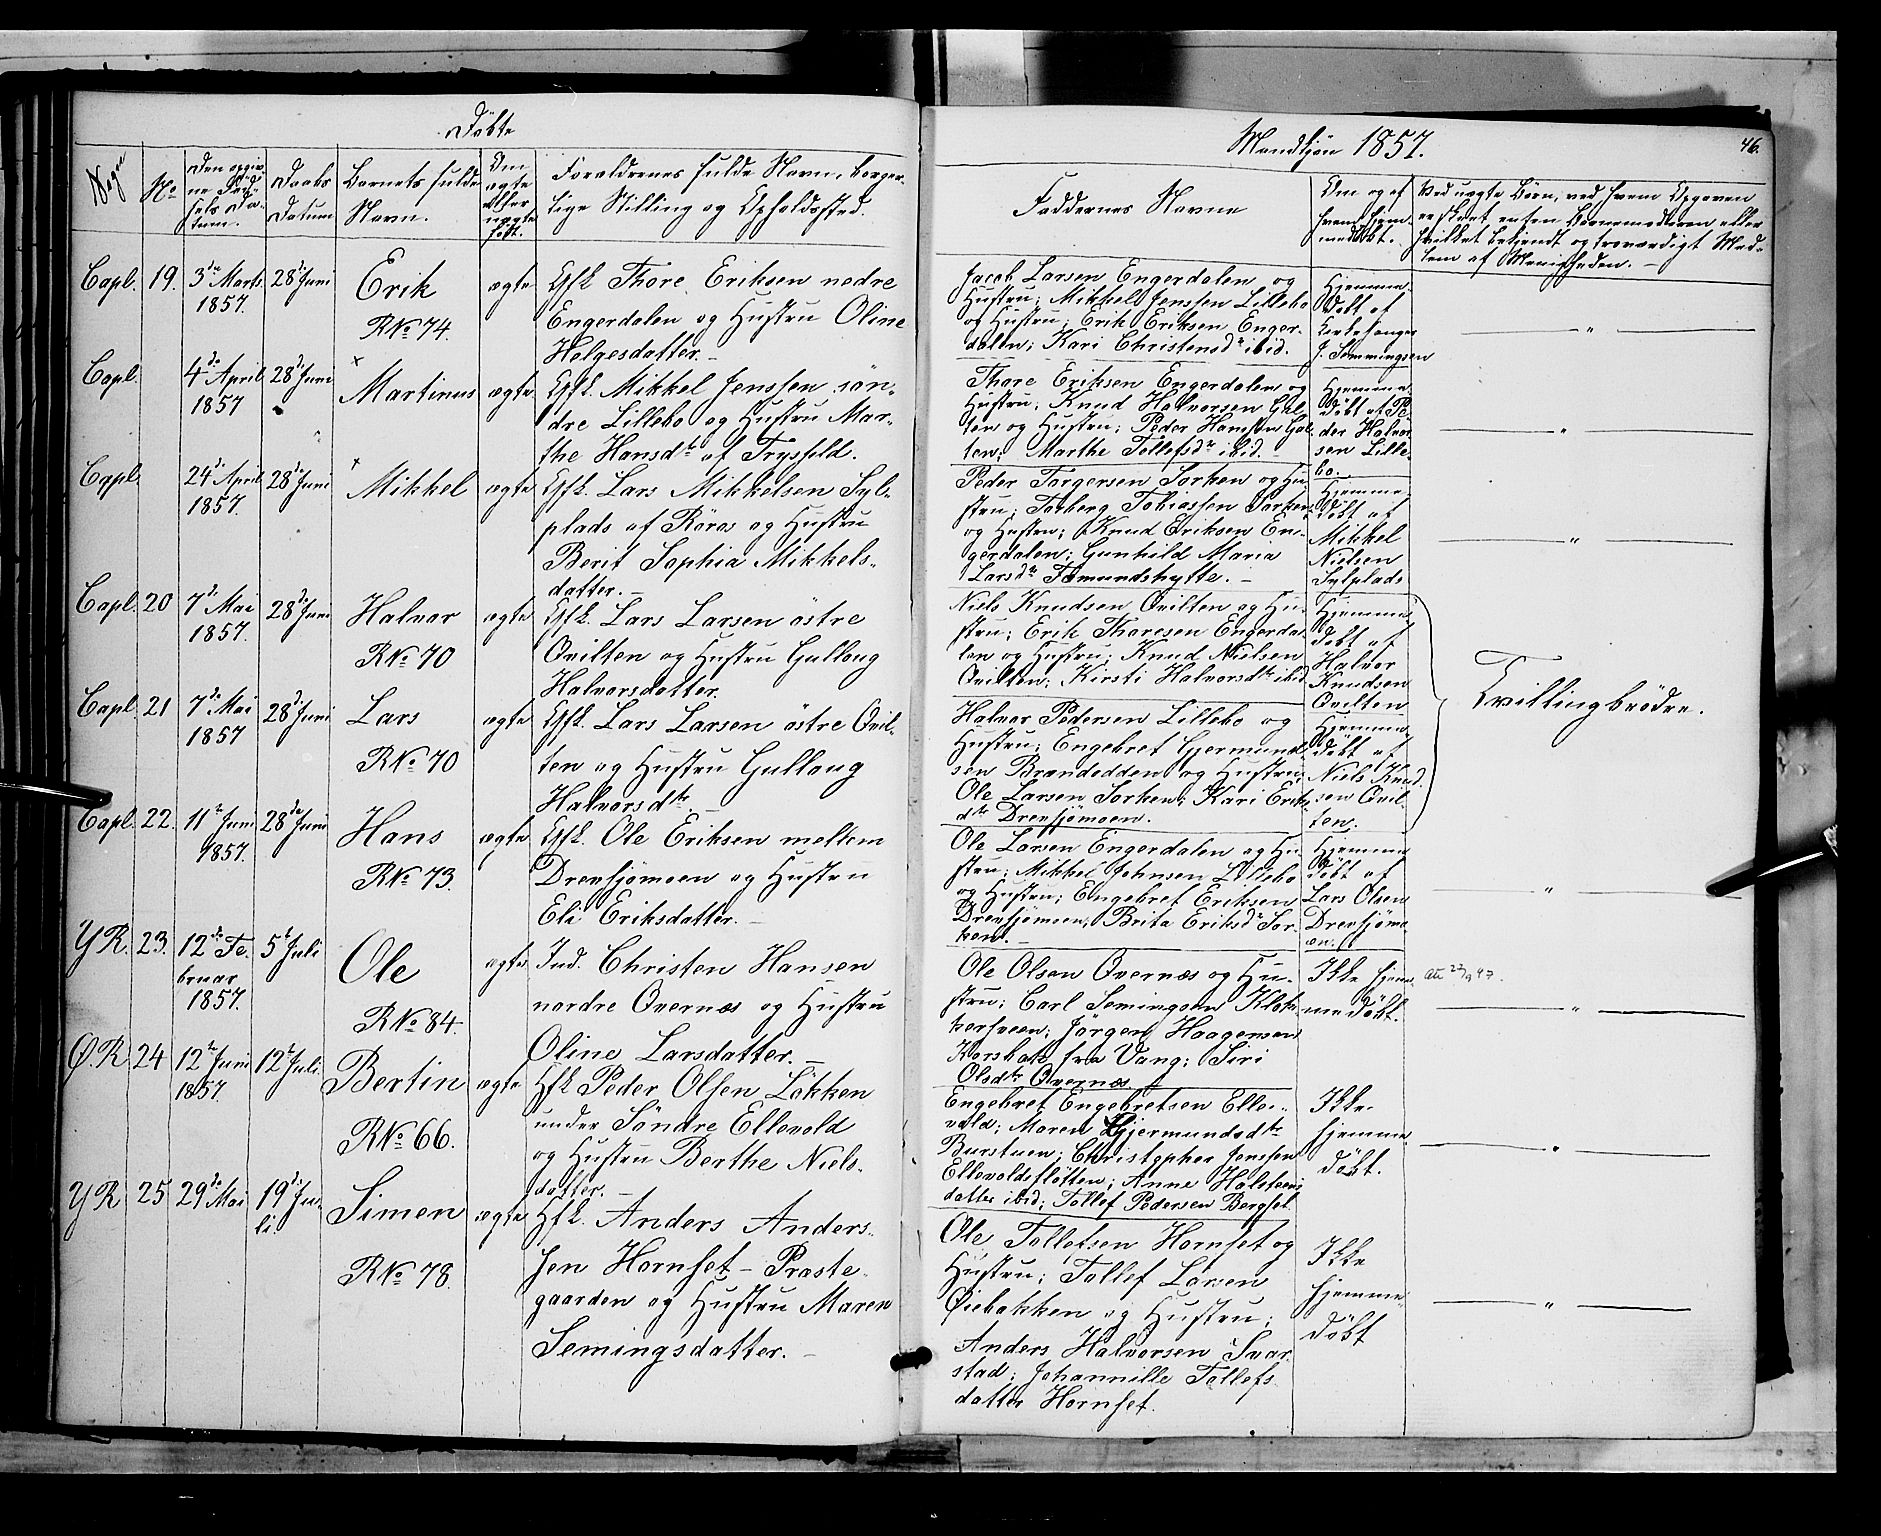 Döbte
Mandkjön 1857.
46.
Sogn
No
Den opgivne Födsels Datum.
Daabs Datum
Barnets fulde Navn.
Om ægte eller uægte födt.
Forældrenes fulde Navn, borgerlige Stilling og Opholdssted.
Faddernes Navne
Om og af hvem hjemmedöbt.
Ved uægte Börn, ved hvem Opgaven er skeet enten Barnemoderen eller hvilket bekjendt og troværdigt Medlem af Menigheden. —
Capl. 19. 3de Marts 28de Juni Erik ægte Gfk Thore Eriksen nedre
1857.
RNo 74.
Engerdalen og Hustru Oline
Helgesdatter. —
Jacob Larsen Engerdalen og
Hustru; Mikkel Jenssen Lillebo
og Hustru; Erik Eriksen Enger-
dalen; Kari Christensdtr ibid.
Hjemme-
döbt af
Kirkesanger
J. Semmingsen
"
Capl. 4de April 28de Juni × Martinus ægte Gfk. Mikkel Jenssen sön-
1857
dre Lillebo og Hustru Mar-
the Hansdtr af Trysfeld.
Thore Eriksen Engerdalen og
Hustru; Knud Halvorsen Gal-
ten og Hustru; Peder Hansen Gal-
ten; Marthe Tollefsdtr ibid. —
Hjemme-
döbt af Pe-
der Halvor-
sen Lille-
bo.
"
Capl. 24de April 28de Juni × Mikkel ægte Gfk. Lars Mikkelsen Syl-
1857.
plads af Röros og Hustru
Berit Sophia Mikkels-
datter. —
Peder Torgersen Sorken og Hu-
stru; Torberg Tobiassen Sorken
og Hustru; Knud Eriksen En-
gerdalen; Gunhild Maria
Larsdtr Fæmundshytte. —
Hjemme-
döbt af
Mikkel
Nielsen
Sylplads
"
Capl. 20 7de Mai 28de Juni Halvor ægte Gfk. Lars Larsen östre
1857.
RNo 70
Qvilten og Hustru Gullaug
Halvorsdatter.
Niels Knudsen Qvilten og Hu-
stru; Erik Thoresen Engerda-
len og Hustru; Knud Nielsen
Qvilten; Kirsti Halvorsdtr ibid.
Hjemme-
döbt af
Halvor
Knudsen
Qvilten
Tvillingbrödre.
Capl. 21 7de Mai 28de Juni Lars ægte Gfk. Lars Larsen östre Qvil-
1857
RNo 70
ten og Hustru Gullaug
Halvorsdtr. —
Halvor Pedersen Lillebo og
Hustru; Engebret Gjermund-
sen Brandedden og Hustru;
Ole Larsen Sorken; Kari Eriks-
dtr Drevsjömoen.
Hjemme-
döbt af
Niels Knud-
sen Qvil-
ten.
Capl. 22. 11te Juni 28de Juni Hans ægte Gfk. Ole Eriksen mellem
1857.
RNo 73.
Drevsjömoen og Hustru
Eli Eriksdatter. —
Ole Larsen Engerdalen og Hu-
stru; Mikkel Johnsen Lillebo
og Hustru; Engebret Eriksen
Drevsjömoen; Brita Eriksdtr Sor-
ken. —
Hjemme-
döbt af
Lars Olsen
Drevsjömo-
en.
"
YR. 23. 12te Fe- 5te Juli Ole ægte Ind. Christen Hansen
bruar
1857.
RNo 84.
nordre Overnæs og Hustru
Oline Larsdatter. —
Ole Olsen Overnæs og Hu-
stru; Carl Semingsen Klok-
kersveen; Jörgen Haagensen
Korsbak fra Vang; Siri
Olsdtr Overnæs. —
Ikke hjem-
medöbt.
"
ØR 24 12te Juni 12te Juli. Bertin ægte Hfk Peder Olsen Lökken
1857.
RNo 66.
under Söndre Ellevold
og Hustru Berthe Niels-
datter. —
Engebret Engebretsen Elle-
vold; Maren Gjermundsdtr
Burstuen; Christopher Jenssen
Ellevoldsflötten; Anne Halsteins-
datter ibid; Tollef Pedersen Bergset.
Ikke
hjemme-
döbt.
"
YR 25 29de Mai 19de Ju- Simen ægte Hfk. Anders Anders-
li.
RNo 78.
sen Hornset - Præste-
gaarden og Hustru Maren
Semingsdatter. —
Ole Tollefsen Hornset og
Hustru; Tollef Larsen
Öiebakken og Hustru;
Anders Halvorsen Svar-
stad; Johannille Tollefs-
datter Hornset.
Ikke
hjemme-
döbt
"